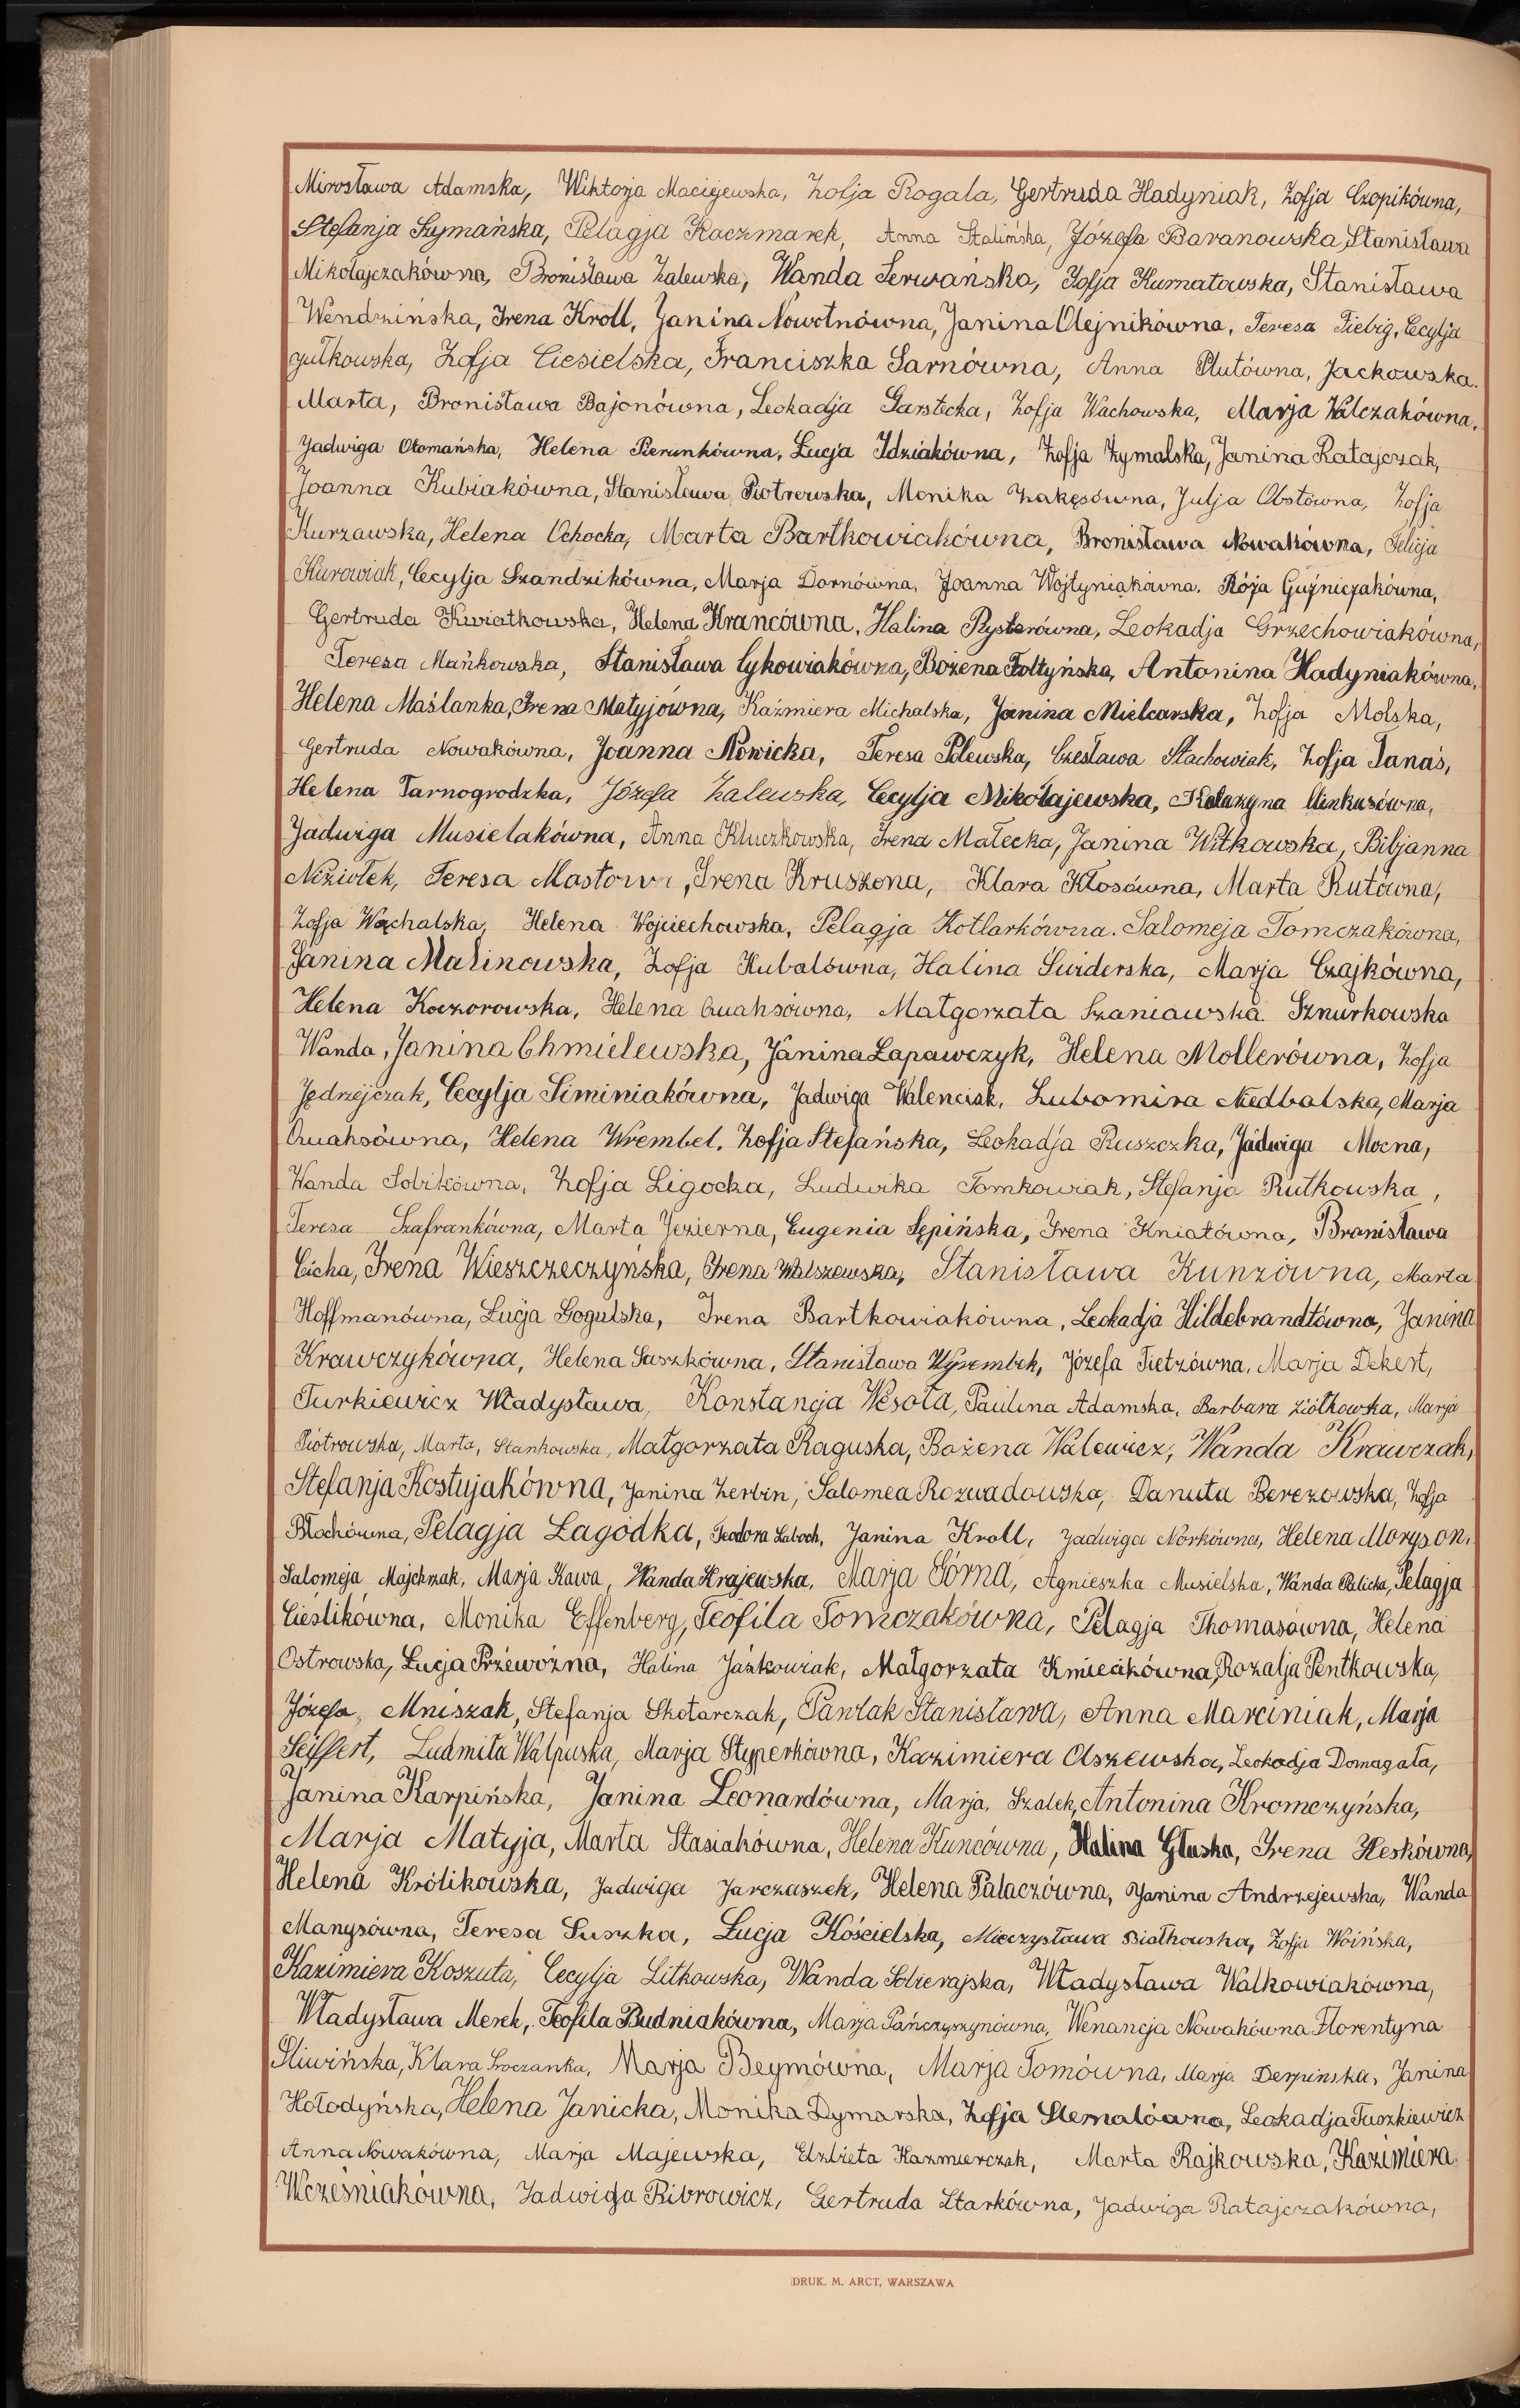 Mirosława Adamska, Wiktorja Maciejewska, Zofja Rogala, Gertruda Hadyniak, Zofja Czopikówna,
Stefanja Szymańska, Pelagja Kaczmarek, Anna Stalińska, Józefa Baranowska, Stanisława
Mikołajczakówna, Bronisława Zalewska, Wanda Serwańska, Zofja Kurnatowska, Stanisława
Wendzińska, Irena Kroll, Janina Nowotnówna, Janina Olejnikówna, Teresa Fiebig, Cecylja
Gułkowska, Zofja Ciesielska, Franciszka Sarnówna, Anna Plutówna, Jackowska.
Marta, Bronisława Bajonówna, Leokadja Garstecka, Zofja Wachowska, Marja Walczakówna,
Jadwiga Otomańska, Helena Pierunkówna, Łucja Idziakówna, Zofja Zymalska, Janina Ratajczak,
Joanna Kubiakówna, Stanisława Piotrowska, Monika Zakęsówna, Julja Obstówna, Zofja
Kurzawska, Helena Ochocka, Marta Bartkowiakówna, Bronisława Nowakówna, Felicja
Kurowiak, Cecylja Szandzikówna, Marja Dornówna, Joanna Wojtyniakówna. Róża Guźniczakówna,
Gertruda Kwiatkowska, Helena Krancówna, Halina Rysterówna, Leokadja Grzechowiakówna,
Teresa Mańkowska, Stanisława Cykowiakówna, Bożena Fołtyńska, Antonina Hadyniakówna,
Helena Maślanka, Irena Matyjówna, Kaźmiera Michalska, Janina Mielcarska, Zofja Molska,
Gertruda Nowakówna, Joanna Nowicka, Teresa Polewska, Czesława Stachowiak, Zofja Tanaś,
Helena Tarnogrodzka, Józefa Zalewska, Cecylja Mikołajewska, Katarzyna Minkusówna,
Jadwiga Musielakówna, Anna Kluczkowska, Irena Małecka, Janina Witkowska, Bibjanna
Niziołek, Teresa Irena Kruszona, Klara Kłosówna, Marta Rutówna,
Zofja Wąchalska, Helena Wojciechowska, Pelagja Kotlarkówna. Salomeja Tomczakówna,
Janina Malinowska, Zofja Kubalówna, Halina Świderska, Marja Czajkówna,
Helena Koczorowska, Helena Quaksówna, Małgorzata Szaniawska. Sznurkowska
Wanda, Janina Chmielewska, Janina Łapawczyk, Helena Mollerówna, Zofja
Jędrzejczak, Cecylja Siminiakówna, Jadwiga Walenciak, Lubomira Niedbalska, Marja
Quaksówna, Helena Wrembel, Zofja Stefańska, Leokadja Ruszczka, Jadwiga Mocna,
Wanda Sobikówna, Zofja Ligocka, Ludwika Tomkowiak, Stefanja Rutkowska,
Teresa Szafrankówna, Marta Jezierna, Eugenia Sępińska, Irena Kniatówna, Bronisława
Cicha, Irena Wieszczeczyńska, Irena Walszewska, Stanisława Kunzówna, Marta
Hoffmanówna, Łucja Gogulska, Irena Bartkowiakówna, Leokadja Hildebrandtówna, Janina
Krawczykówna, Helena Saszkówna, Stanisława Wyrembek, Józefa Tietzówna, Marja Dekert,
Turkiewicz Władysława, Konstancja Wesoła, Paulina Adamska, Barbara Ziółkowska, Marja
Piotrowska, Marta, Stankowska, Małgorzata Raguska, Bożena Walewicz, Wanda Krawczak,
Stefanja Kostujakówna, Janina Zerbin, Salomea Rozwadowska, Danuta Berezowska, Zofja
Błochówna, Pelagja Łagódka, Teodora Laboch, Janina Kroll, Jadwiga Norkówna, Helena Moryson,
Salomeja Majchrzak, Marja Kawa, Wanda Krajewska, Marja Górna, Agnieszka Musielska, Wanda Palicka, Pelagja
Cieślikówna, Monika Effenberg, Teofila Tomczakówna, Pelagja Thomasówna, Helena
Ostrowska, Łucja Przewoźna, Halina Jaśkowiak, Małgorzata Kmieciakówna, Rozalja Pentkowska,
Józefa Mniszak, Stefanja Skotarczak, Pawlak Stanisława, Anna Marciniak, Marja
Seiffert, Ludmiła Walpuska, Marja Styperkówna, Kazimiera Olszewska, Leokadja Domagała,
Janina Karpińska, Janina Leonardówna, Marja, Szalek, Antonina Kromczyńska,
Marja Matyja, Marta Stasiakówna, Helena Kuncówna, Halina Głuska, Irena Heskówna,
Helena Królikowska, Jadwiga Jarczaszek, Helena Pałaczówna, Janina Andrzejewska, Wanda
Manysówna, Teresa Suszka, Łucja Kościelska, Mieczysława Białkowska, Zofja Woińska,
Kazimiera Koszuta, Cecylja Litkowska, Wanda Sobierajska, Władysława Walkowiakówna,
Władysława Merek, Teofila Budniakówna, Marja Pańczyszynówna, Wenancja Nowakówna Florentyna
Śliwińska, Klara Sroczanka, Marja Beymówna, Marja Tomówna, Marja Derpinska, Janina
Hołodyńska, Helena Janicka, Monika Dymarska, Zofja Slemalówna, Leokadja Tuszkiewicz
Anna Nowakówna, Marja Majewska, Elżbieta Kazmierczak, Marta Rajkowska, Kazimiera
Wcześniakówna, Jadwiga Ribrowicz, Gertruda Starkówna, Jadwiga Ratajczakówna,
DRUK. M. ARCT, WARSZAWA